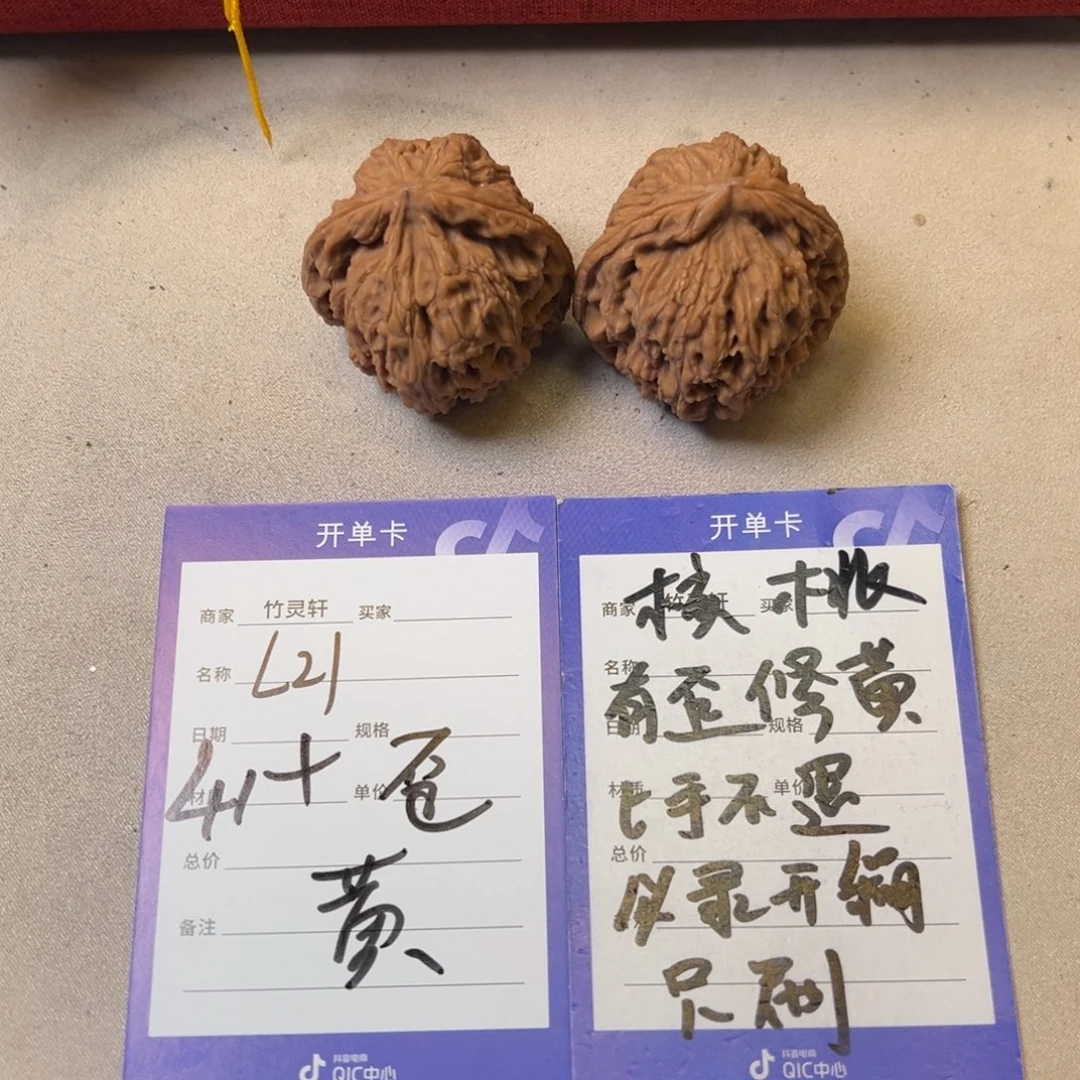 开单卡
商家 竹灵轩 买家
名称 L21
日期 规格
材 单价
41+ 苍
总价
黄
备注
抖音电商
QIC中心
开单卡
核桃
商家 买家
名称
有歪修黄
规格
材质 单价
上手不退
总价
必录开
只刷
抖音电商
QIC中心